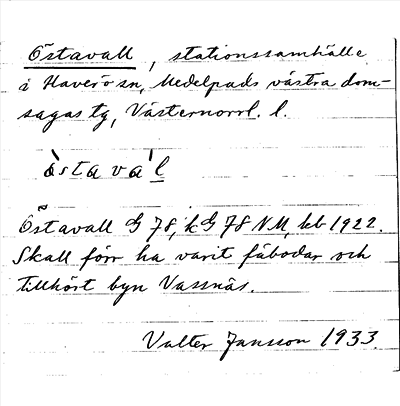 Östavall, stationssamhälle
i Haverö sn, Medelpads västra dom-
sagas tg, Västernorrl. l.
òstava'l
Östavall G 78, kG 78 NM, kb 1922.
Skall förr ha varit fäbodar och
tillhört byn Vassnäs.
Valter Jansson 1933.